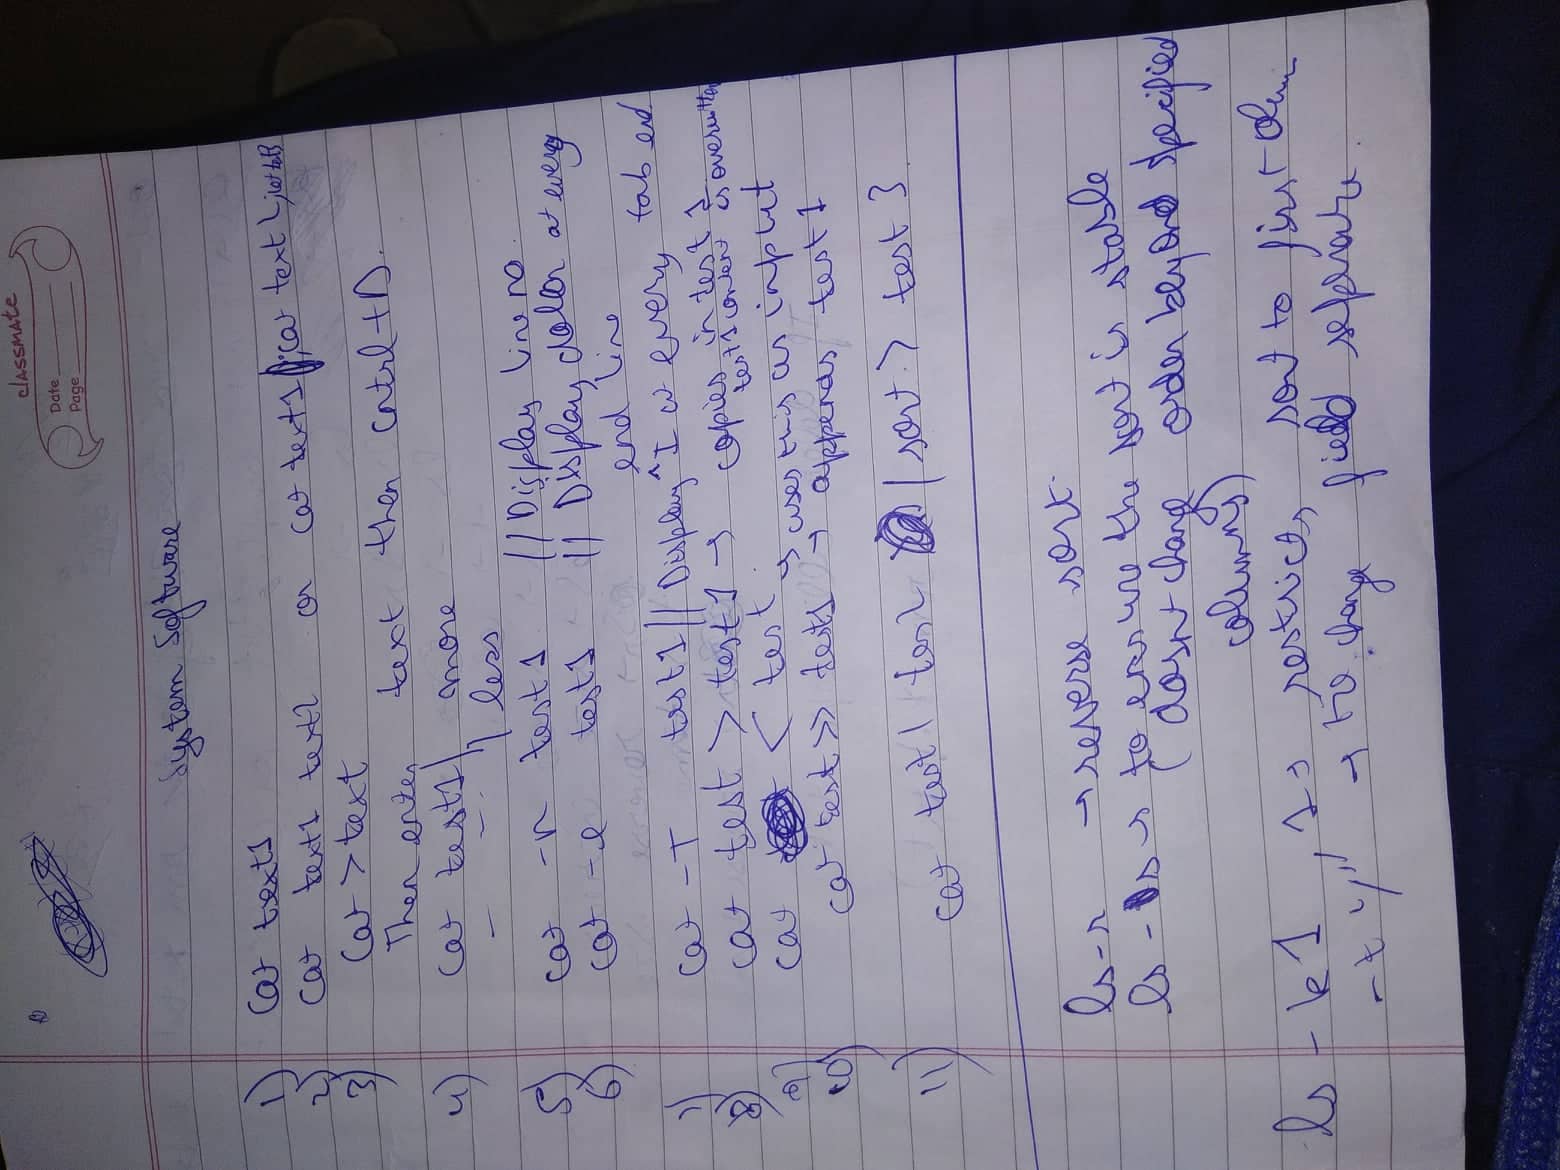 classmate
Date
Page
System Software
1) Cat text1
2) Cat text1 text2 or Cat text1; cat text2;
3) Cat > text
Then enter text then cntrl+D.
4) Cat test1 | more
- - - | less
5) Cat -n test1 || Display line no.
6) Cat -e test1 || Display dollar at every
end line
7) Cat -T test1 || Display ^I at every tab end
8) Cat test > test1 → copies in test1
test1 content is overwritten
9) Cat < test → uses this as input
10) Cat test >> test1 → appends test1
11) Cat test1 test2 | sort > test3.
ls -r → reverse sort.
ls -s → to ensure the sort is stable
(dosn't change order beyond specified
columns)
ls - k1, 1 → restricts sort to first
-t "," → to change field separator.